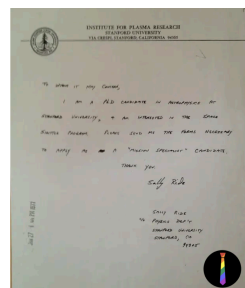 INSTITUTE FOR PLASMA RESEARCH
STANFORD UNIVERSITY
VIA CRESPI, STANFORD, CALIFORNIA 94305
To whom it may concern,
I am a PhD candidate in astrophysics at
Stanford University, & am interested in the Space
Shuttle Program. Please send me the forms necessary
to apply as a "mission specialist" candidate.
Thank you.
Sally Ride
Sally Ride
Physics Dep't
Stanford University
Stanford, CA
94305